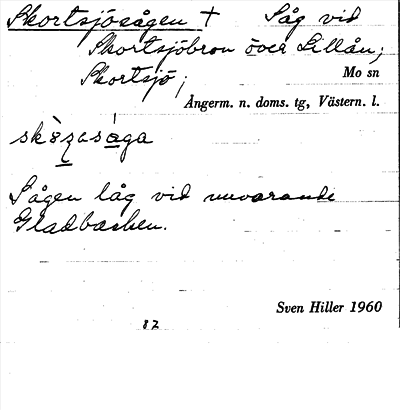 Skortsjösågen † Såg vid
Skortsjöbron över Lillån;
Skortsjö; Mo sn
Ångerm. n. doms. tg, Västern. l.
Sågen låg vid nuvarande
Gladbacken.
Sven Hiller 1960
82